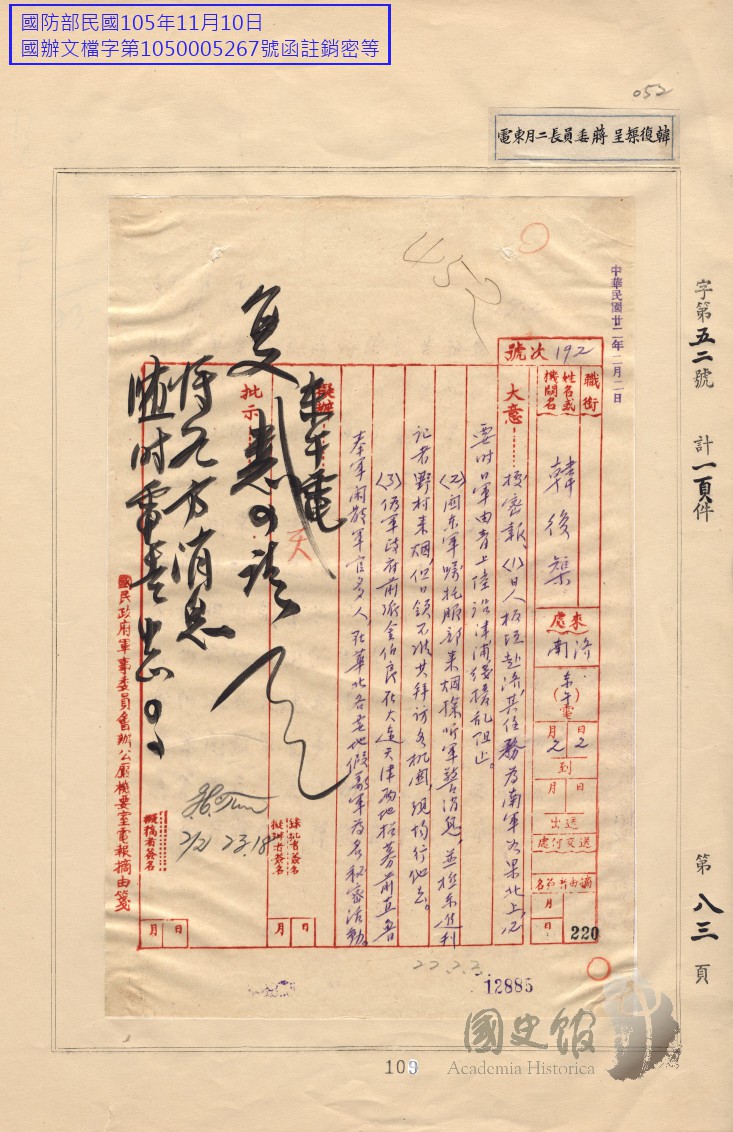 國防部民國105年11月10日
國辦文檔字第1050005267號函註銷密等
052
韓復榘呈蔣委員長二月東電
字第五二號 計一頁件
第八三頁
中華民國廿二年二月二日
號次 192
職銜
姓名或機關名
韓復榘
來處
濟南
東午(電)
2月2日
到
月 日
送出
送交何處
摘由者名
月 日
220
大意
據密報、(1)日人板垣赴濟、其任務為南軍如果北上、必
要時日軍由青上陸沿津浦綫擾亂阻止。
(2)關東軍囑托服部来烟探听軍警消息、並
記者野村来烟、但日領不供其拜訪各机関、現均行他去。
(3)偽軍政府前派金伯良在大連天津兩地招募前直魯
奉軍閑散軍官多人、在華北各地假義軍為名秘密活動。
擬辦
批示
東午電
复
悉可談
將各方消息
隨時電告出為可
擬稿者簽名
月 日
月 日
2/2 23.18
國民政府軍事委員會辦公廳機要室電報摘由箋
22.2.3.
12885
109
國史館
Academia Historica